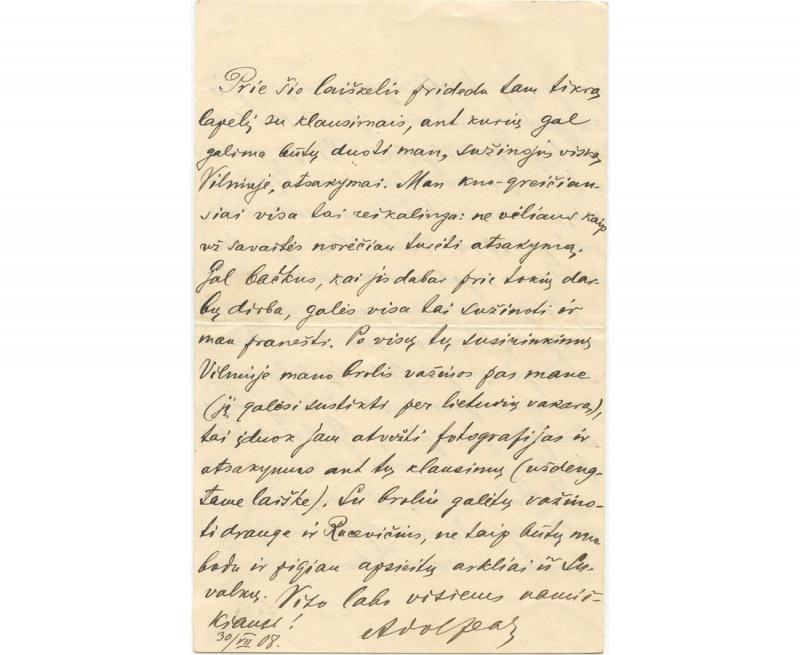 Prie šio laiškelio pridedu tam tikrą
lapelį su klausimais, ant kurių gal
galima būtų duoti man, sužinojus viską
Vilniuje, atsakymai. Man kuo-greičiau-
siai visa tai reikalinga: ne vėliaus kaip
už savaitės norėčiau turėti atsakymą.
Gal Bačkus, kai jis dabar prie tokių dar-
bų dirba, galės visa tai sužinoti ir
man pranešti. Po visų tų susirinkimų
Vilniuje mano brolis važiuos pas mane
(jį galėsi sustikti per lietuvių vakarą),
tai įduok jam atvežti fotografijas ir
atsakymus ant tų klausimų (uždeng-
tame laiške). Su broliu galėtų važiuo-
ti drauge ir Racevičius, ne taip būtų nuo
bodu ir pigiau apsieitų arkliai iš Su-
valkų. Viso labo visiems namiš-
kiams!
30/VII 08. Adolfas